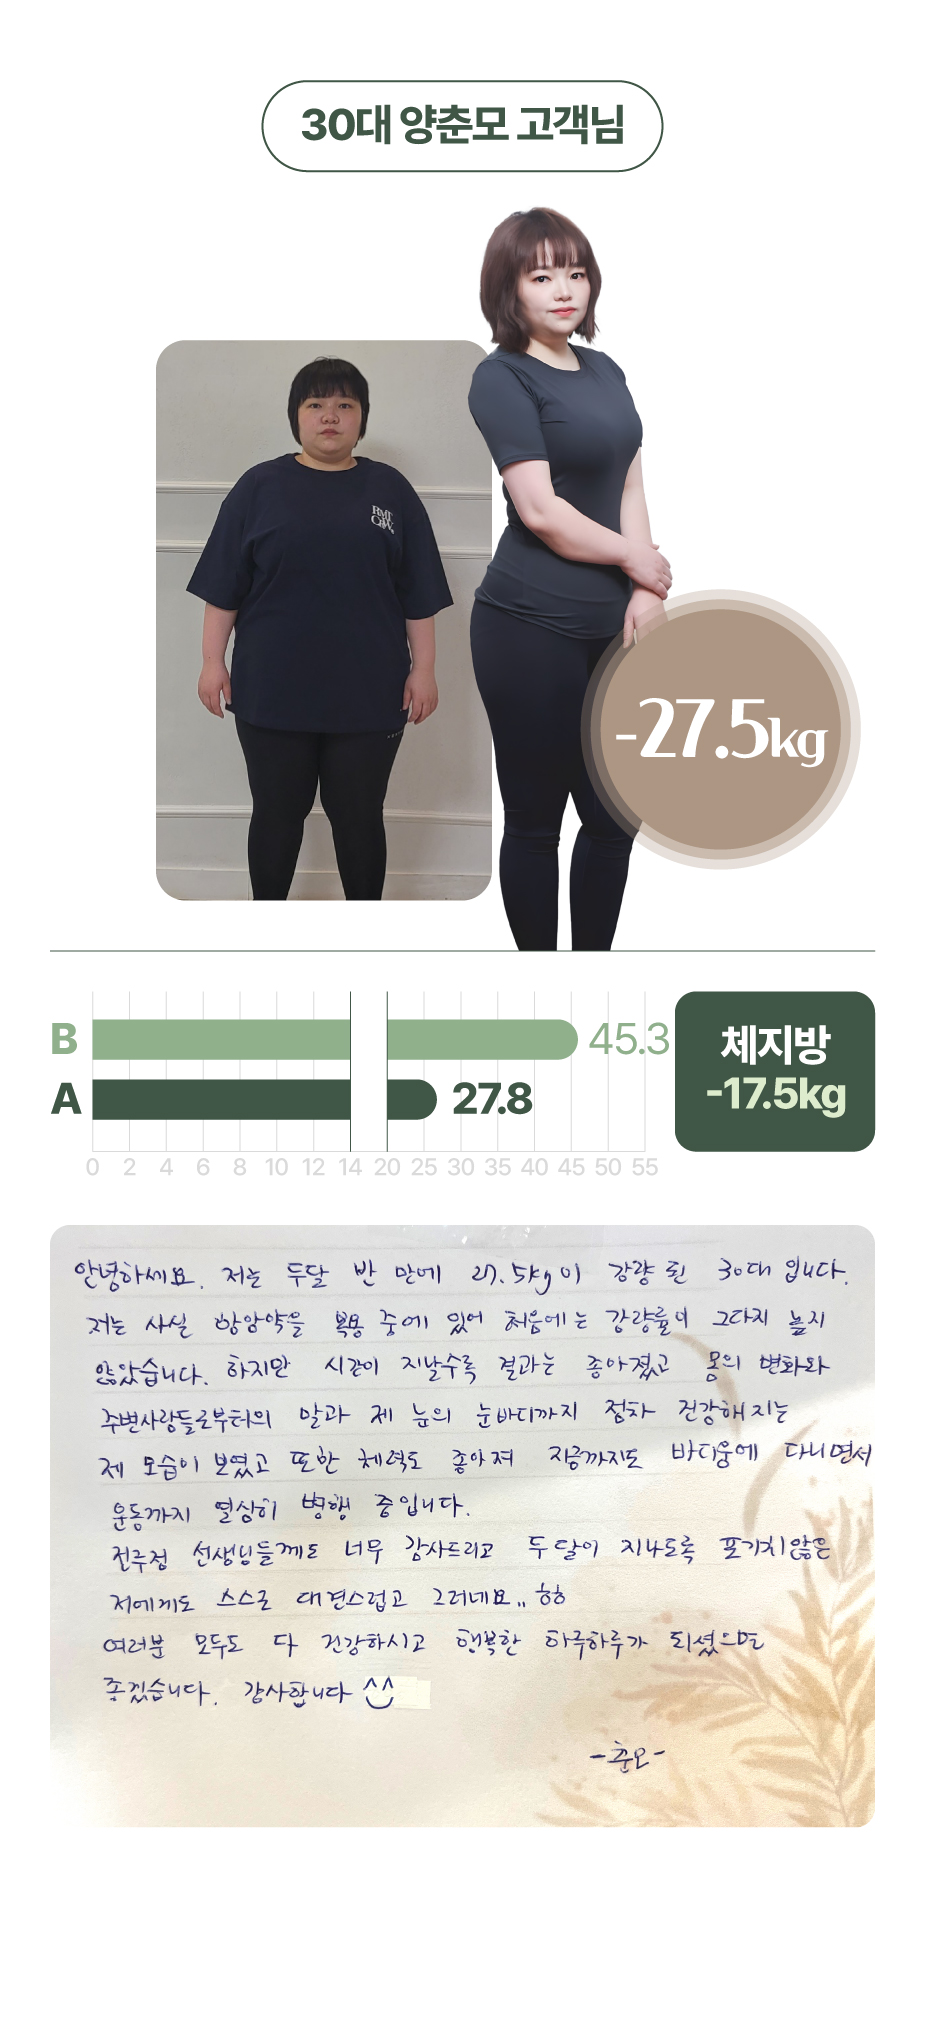 30대 양춘모 고객님
RMT
CREW.
-27.5kg
B 45.3
A 27.8
0 2 4 6 8 10 12 14 20 25 30 35 40 45 50 55
체지방
-17.5kg
안녕하세요. 저는 두달 반 만에 27.5kg이 감량 된 30대 입니다.
저는 사실 항암약을 복용 중에 있어 처음에는 감량률이 그다지 높지
않았습니다. 하지만 시간이 지날수록 결과는 좋아졌고 몸의 변화와
주변사람들로부터의 말과 제 눈의 눈바디까지 점차 건강해지는
제 모습이 보였고 또한 체력도 좋아져 지금까지도 바디움에 다니면서
운동까지 열심히 병행 중입니다.
전주점 선생님들께도 너무 감사드리고 두달이 지나도록 포기치않은
저에게도 스스로 대견스럽고 그러네요.. ㅎㅎ
여러분 모두도 다 건강하시고 행복한 하루하루가 되셨으면
좋겠습니다. 감사합니다 ^^
-춘모-